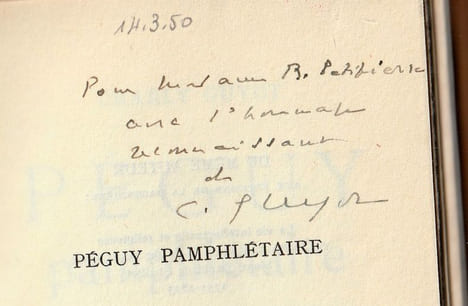 14.3.50
Pour Madame B. Petitpierre
avec l'hommage
reconnaissant
de
C. Guyot
PÉGUY PAMPHLÉTAIRE